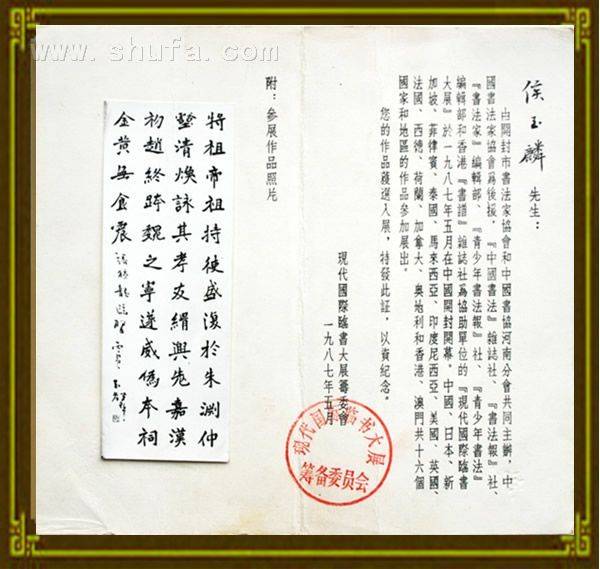 www.shufa.com
侯玉麟 先生：
由開封市書法家協會和中國書協河南分會共同主辦，中
國書法家協會爲後援，『中國書法』雜誌社、『書法報』社、
『書法家』編輯部、『青少年書法報』社、『青少年書法』
編輯部和香港『書譜』雜誌社爲協助單位的『現代國際臨書
大展』於一九八七年五月在中國開封開幕。中國、日本、新
加坡、菲律賓、泰國、馬來西亞、印度尼西亞、美國、英國、
法國、西德、荷蘭、加拿大、奥地利和香港、澳門共十六個
國家和地區的作品參加展出。
您的作品獲選入展，特發此証，以資紀念。
現代國際臨書大展籌委會
一九八七年五月
现代国际临书大展
筹备委员会
附：參展作品照片
将祖帝祖持使盛復於朱渊仲
墼清焕詠其孝友緝興先嘉漢
初趙終跨魏之寧遂威僞本祠
金黄無食震